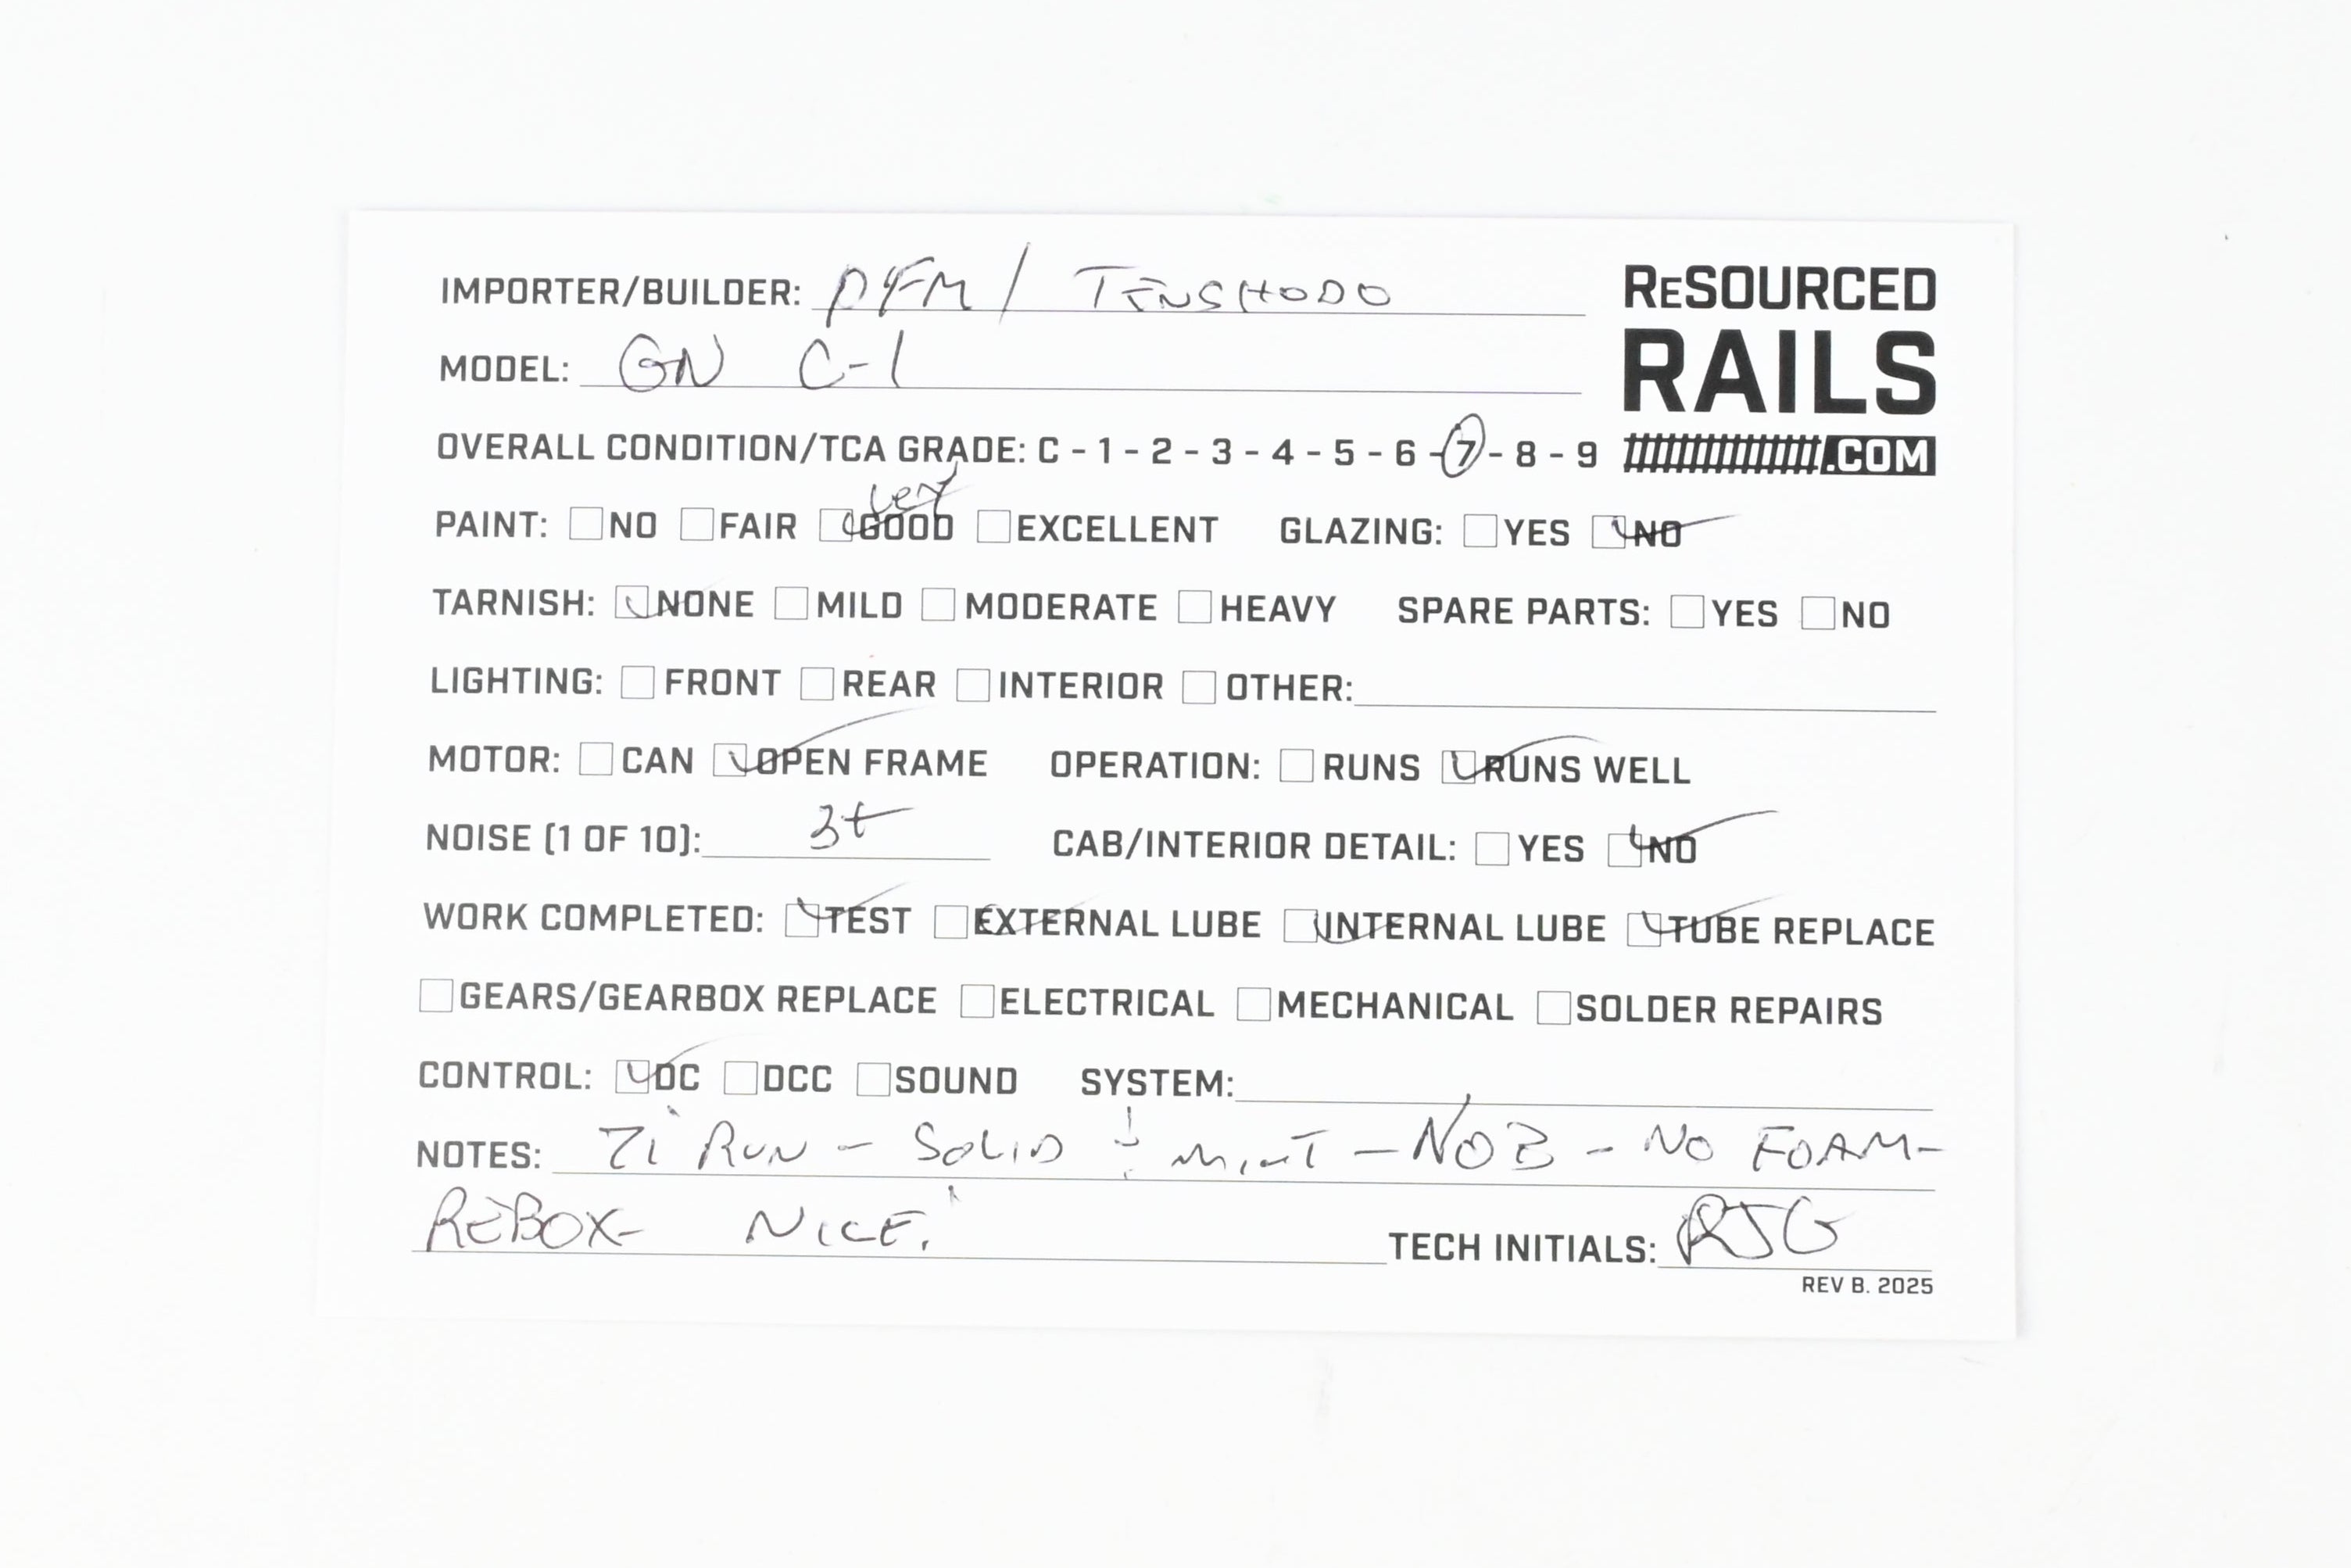 IMPORTER/BUILDER: PFM / TENSHODO
RESOURCED
RAILS
.COM
MODEL: GN C-1
OVERALL CONDITION/TCA GRADE: C - 1 - 2 - 3 - 4 - 5 - 6 - 7 - 8 - 9
Very
PAINT: NO FAIR GOOD EXCELLENT GLAZING: YES NO
TARNISH: NONE MILD MODERATE HEAVY SPARE PARTS: YES NO
LIGHTING: FRONT REAR INTERIOR OTHER:
MOTOR: CAN OPEN FRAME OPERATION: RUNS RUNS WELL
NOISE (1 OF 10): 3+ CAB/INTERIOR DETAIL: YES NO
WORK COMPLETED: TEST EXTERNAL LUBE INTERNAL LUBE TUBE REPLACE
GEARS/GEARBOX REPLACE ELECTRICAL MECHANICAL SOLDER REPAIRS
CONTROL: DC DCC SOUND SYSTEM:
NOTES: RUN - SOLID & MINT - NOB - NO FOAM-
REBOX- NICE!
TECH INITIALS: RJG
REV B. 2025